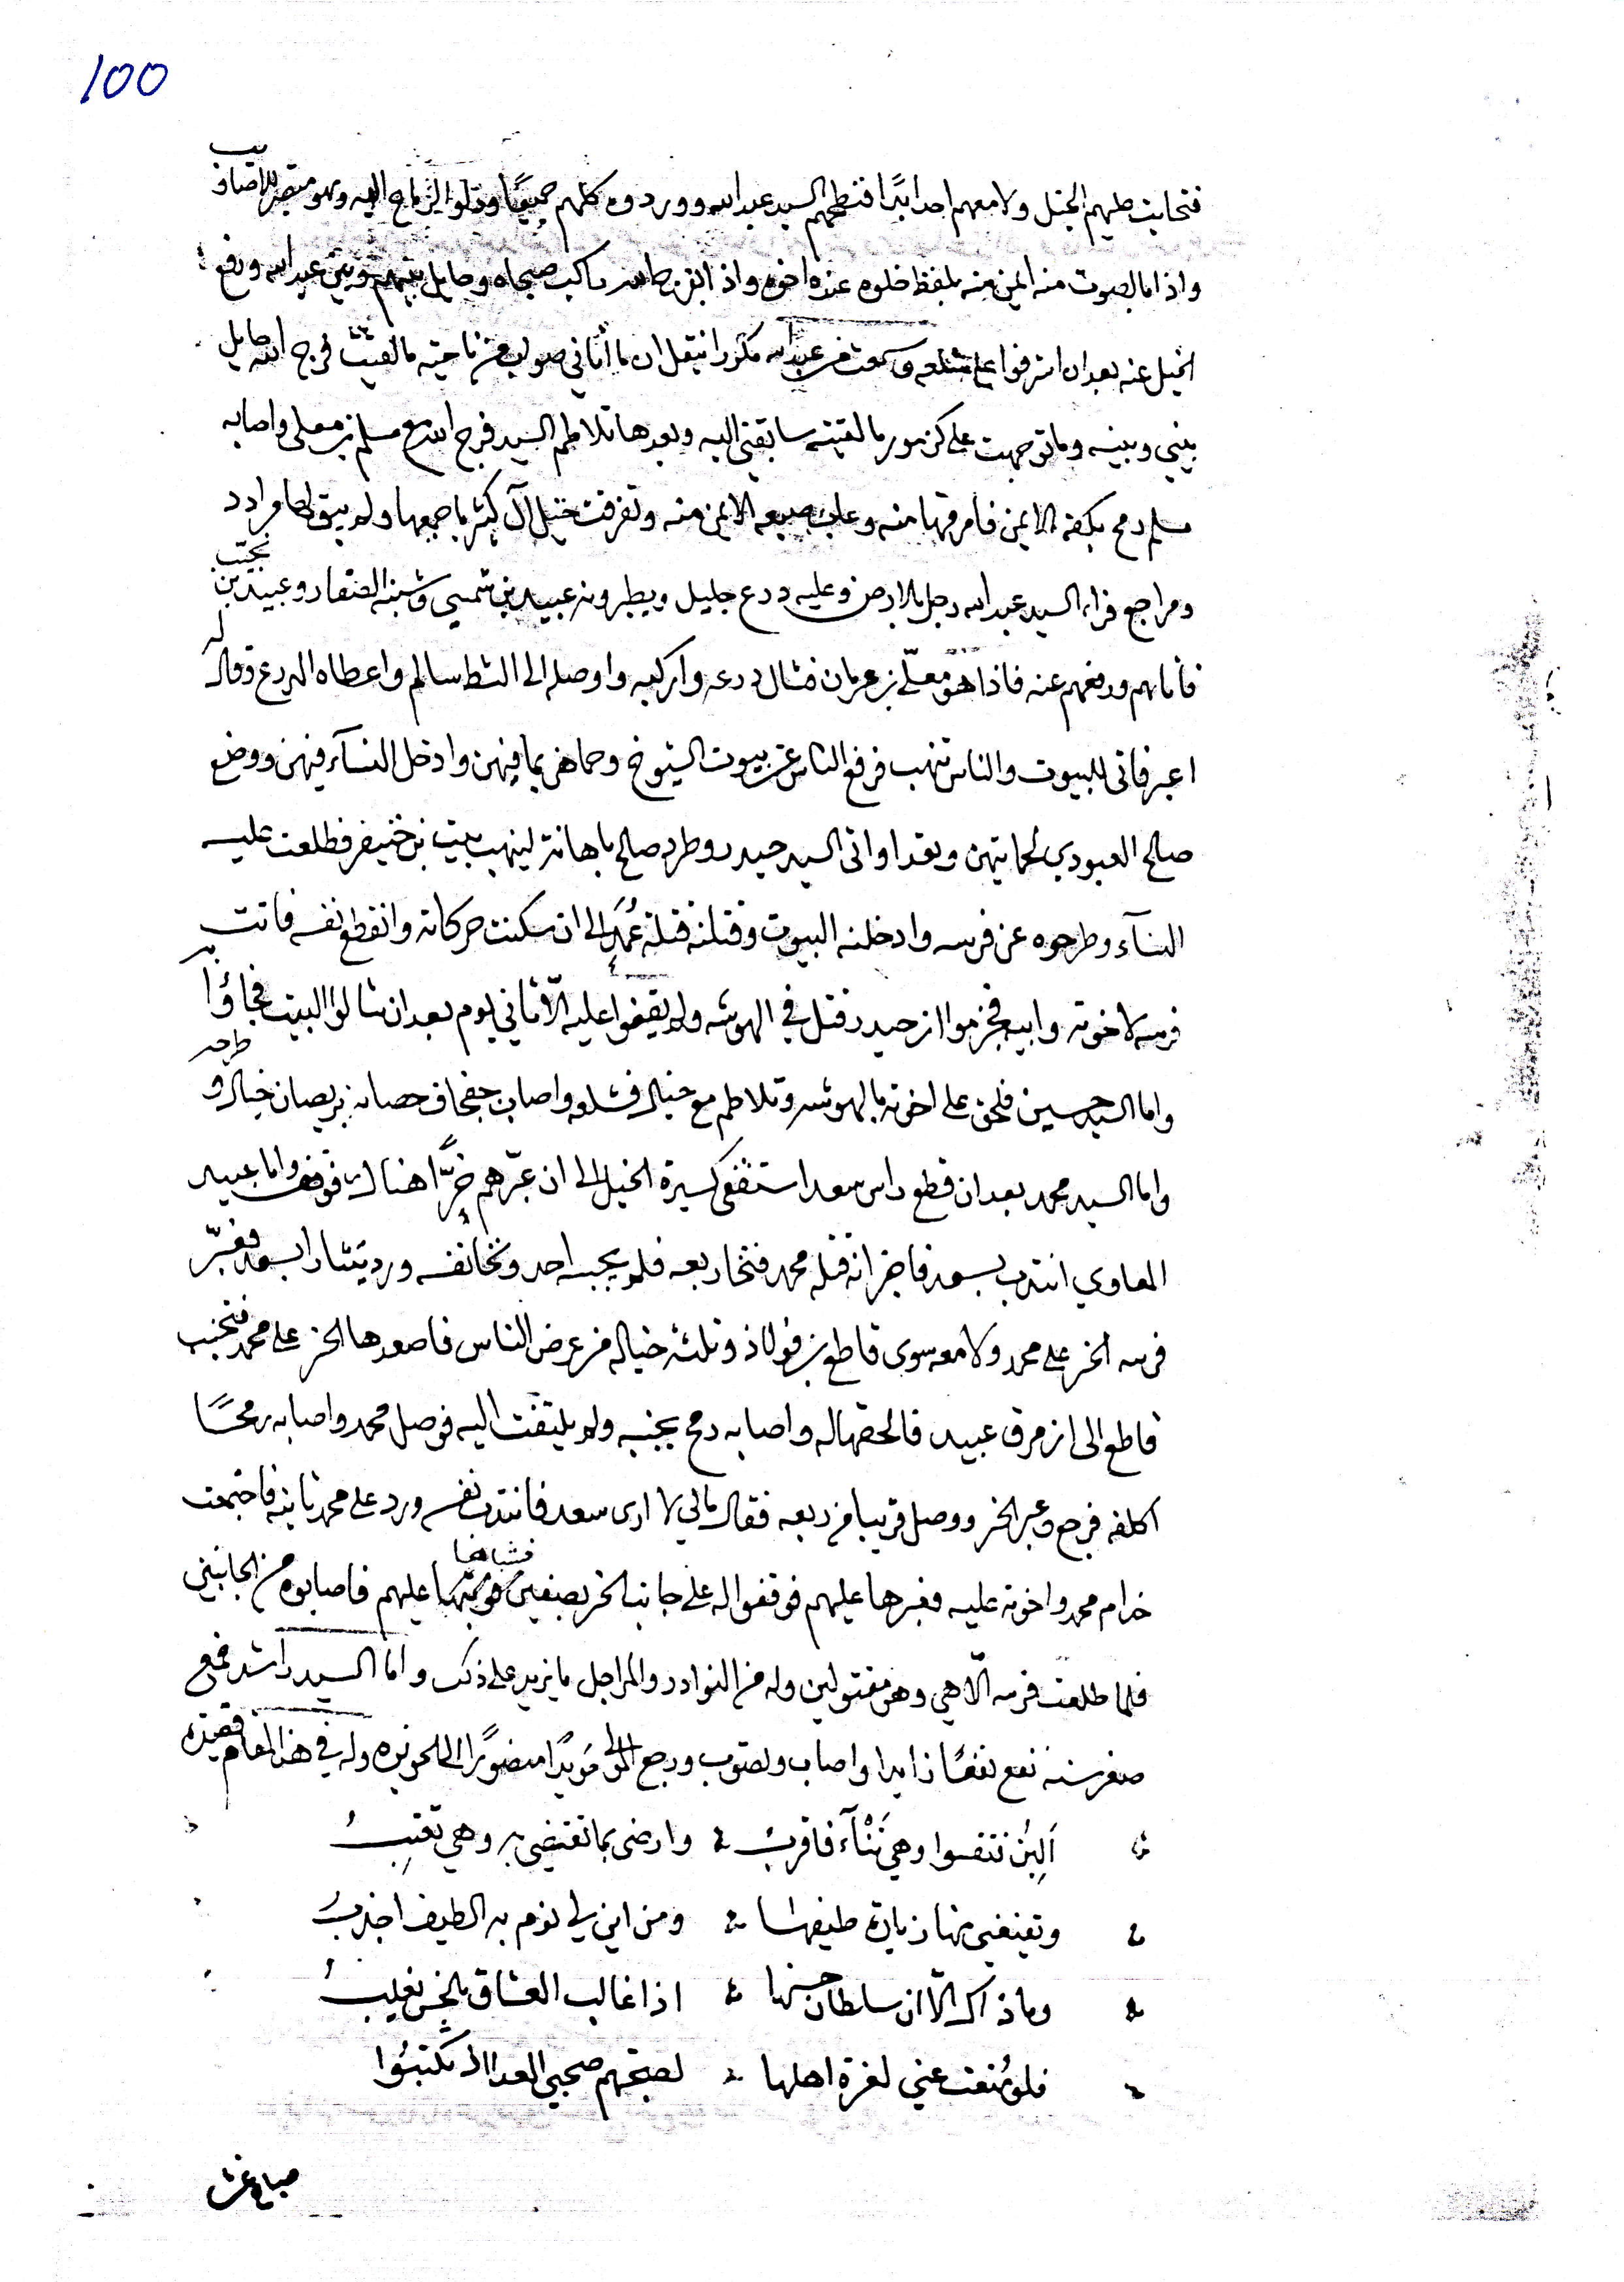 100
فتحايت عليهم الخيل ولا معهم احد ابدًا فنطحهم السيد عبد الله ووردوه كلهم جميعًا ودلوا الرماح اليه وهو
واذا بالصوت منه اليمن منه بلفظ خلوه عنده اخوه واذا راكب وحايل بينهم وبين عبد الله ودفع
الخيل عنه بعد ان اشرفوا على وسمعت من عبد الله مكررا ينقل ان ما أتاني صواب من ناحية ما لقيت فرج الله حايل
بيني وبينه وما توجهت على كل مور ما لقيته سابقني اليه وبعدها تلاطم السيد فرج الله مع مسلم بن معلى واصابه
مسلم رمح بكفه الايمن فامرقها منه وعاب صبيعه الايمن منه وتفرقت خيل آل كثير باجمعها ولم يبق لها مراد
ومراجع فراى السيد عبد الله رجل بالارض وعليه درع جليل ويطبرونه عبيد بن شمسي وعبيد بن نجيب
فاتاهم ودفعهم عنه فاذا هو معلّى بن عرمان فشال درعه واركبه واوصله الى الشط سالم واعطاه الدرع وقال له
اعبر فاتى للبيوت والناس تنهب فرفع الناس عن بيوت الشيوخ وحماهن بما فيهن وادخل النسآء فيهن ووضع
صالح العبودي لحمايتهن وبعد اواتى السيد حيدر وطرد صالح باهانة لينهب بيت بن خنيفر فطلعت عليه
النسآء وطرحوه عن فرسه وادخلنه البيوت وقتلنه قتلة عُمَر الى ان سكنت حركاته وانقطع نفسه فاتت
فرسه لاخوته وابيه فجزموا ان حيدر قتل في الهوشه ولم يقيفوا عليه الّا ثاني يوم بعد ان شالوا البيت فجاؤا به
واما السيد حسين فلحق على اخوته بالهوشه وتلاطم مع خيال فشلعه واصاب جفجاف حصانه خيال وطرحه
واما السيد محمد بعد ان قطع راس سعد استقفى كسيرة الخيل الى ان عبّرهم خرًّا هناك فوقف واما عبيد
المعاوي انتدب بسعد فاخبر انه قتله محمد فتخا ربعه فلم يجبه احد ونخا نفسه ورد يتثار ابسعد فعبّر
فرسه الخر على محمد ولا معه سوى قاطع بن فولاذ وثلثة خياله من عرض الناس فاصعدها الخر على محمد فتجنب
قاطع الى ان مرق عبيد فالحقها له واصابه رمح بجنبه ولم يلتفت اليه فوصل محمد واصابه رمحًا
اكلفه فرجع وعبر الخر ووصل قريبا من ربعه فقال مالي لا ارى سعد فانتدب نفسه ورد على محمد ثانية فاجتمعت
خدام محمد واخوته عليه فعبرها عليهم فوقفوا له على جانب الخر بصفين فشباها عليهم فاصابوه من الجانبين
فلما طلعت فرسه الّا هي وهو مقتولين وله من النوادر والمراجل ما يزيد على ذلك واما السيد راشد فمع
صغر سنه نفع نفعًا زايدا واصاب ولصوب ورجع المولى مؤيدًا منصورًا الى الحويزه وله في هذا المقام قصيده
اَلِينُ فتقسوا وهي تَنْآء فاقربُ وارضى بما تقتضي به وهي تعتبُ
وتقنعني منها زيارة طيفها ومن اين لي نوم به الطيف اجذبُ
وما ذاك الّا ان سلطان حسنها اذا غالب العشاق بالحسن يغلبُ
فلو مُنعت عني لغرة اهلها لصبحتهم صحبي العدا لا تكتبُوا
صباح غرس